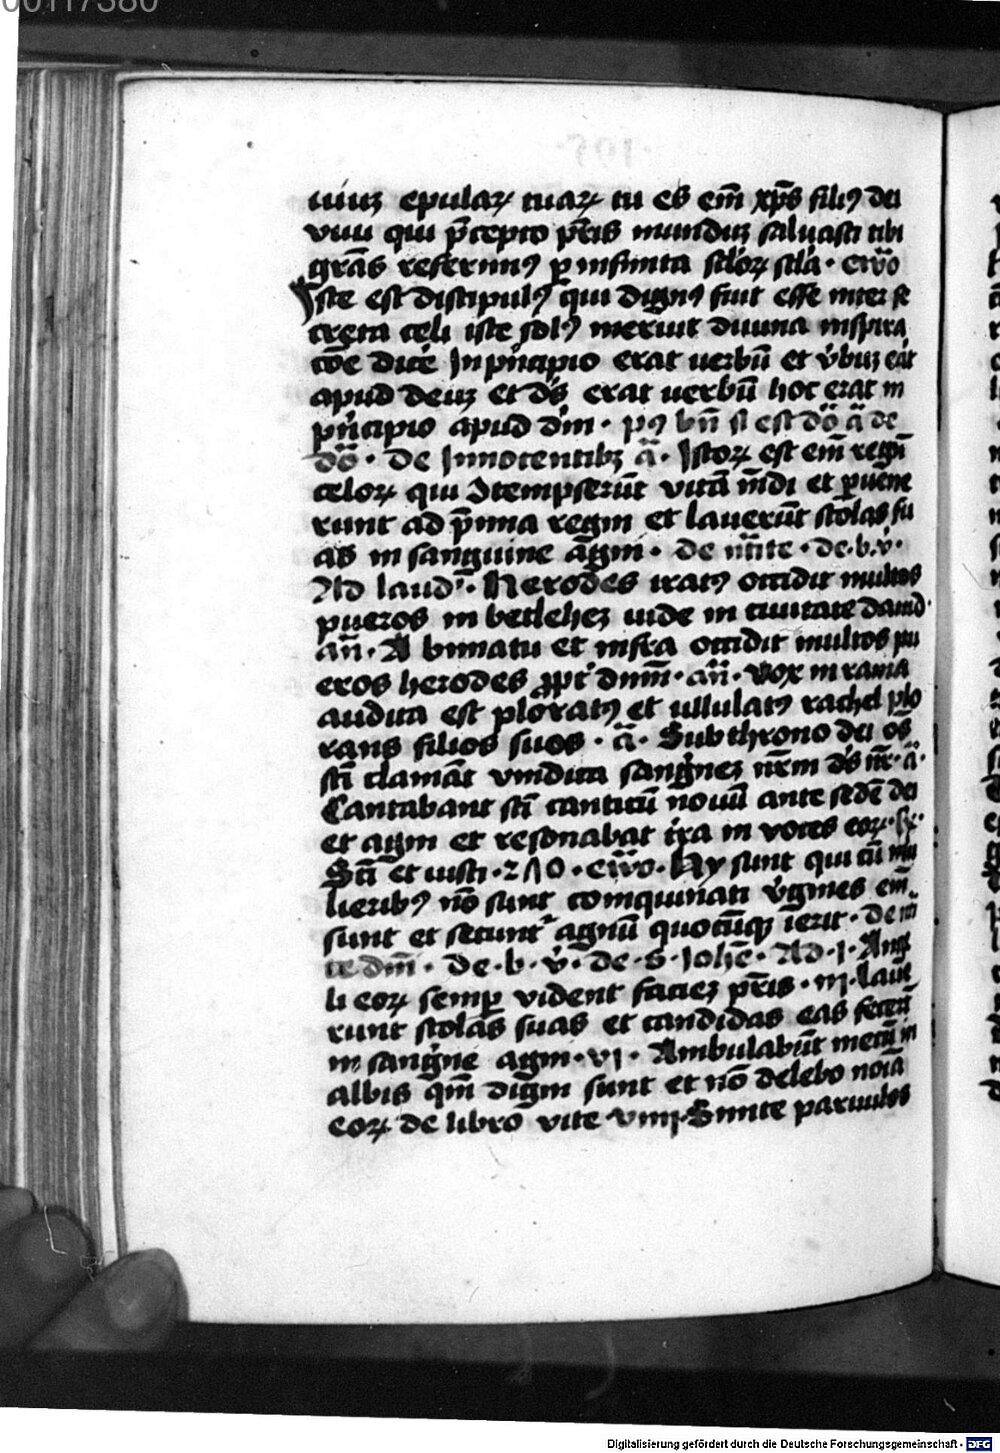 00117380
·105·
uiuꝫ epulaꝝ tuaꝝ tu es em̄ xp̄s filiꝯ dei
viui qui p̄cepto pr̄is munduꝫ saluasti tibi
gr̄as referimꝯ ꝑ infinita sc̄lorꝫ sc̄la · ewo
Iste est discipulꝯ qui dignꝯ fuit esse inter se
creta celi iste solꝯ meruit diuina inspira
cōe dicē In pn̄cipio erat uerbū et v̄buꝫ eāt
apud deuꝫ et ds̄ erat uerbū hoc erat in
pn̄cipio apud dm̄ · pꝯ bn̄ si est dō ā de
dō · de Innocentibꝫ ā · Istoꝝ est em̄ regn̄
celoꝝ qui ↄtempserūt vitā mūdi et ꝑuēne
runt ad p̄mia regni et lauerūt stolas su
as in sanguine agni · de nītte · de · b · v̄ ·
Ad laud̄ · Herodes iratꝯ occidit multos
pueros in betleheꝫ iude in ciuitate dauid ·
an̄ · A bimatu et infra occidit multos pu
eros herodes ꝓpt̄ dnm̄ · an̄ · Vox in rama
audita est ploratꝯ et ullulatꝯ rachel plo
rans filios suos · ā · Sub throno dei os̄
sc̄i clamāt vindica sangīneꝫ nr̄m ds̄ nr̄ · ā ·
Cantabant sc̄i canticū nouū ante sedē dei
et agni et resonabat t̄ra in voces eoꝝ
Sc̄i et iusti · ewo · Hy sunt qui cū mu
lieribꝯ nō sunt coinquinati v̄gines em̄
sunt et secuntr̄ agnū quocūqꝫ īerit · de nīt
te dm̄ · de · b · v̄ · de · S · Iohē · Ad · I · Ange
li eoꝝ semꝑ vident facieꝫ pr̄is · iij · Laue
runt stolas suas et candidas eas fecerūt
in sangīne agni · vj · Ambulabūt mecū in
albis qm̄ digni sunt et nō delebo noīa
eoꝝ de libro vite viiij · Sinite paruulos
Digitalisierung gefördert durch die Deutsche Forschungsgemeinschaft - DFG